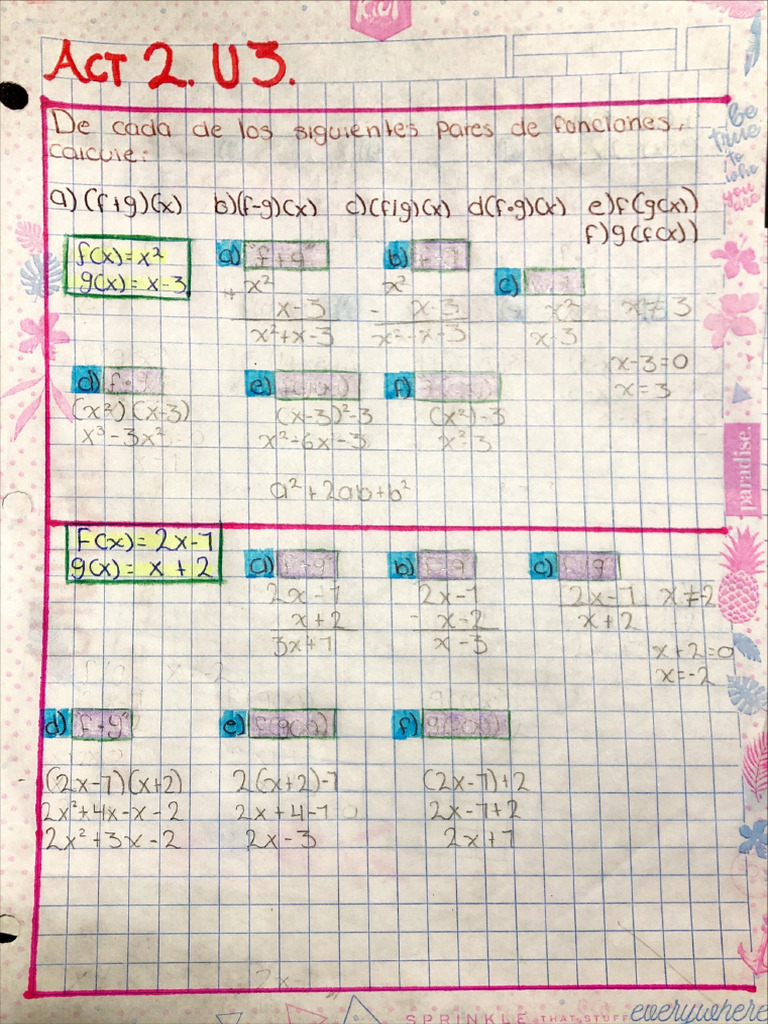 ACT 2. U3.
De cada de los siguientes pares de funciones,
calcule:
a) (f+g)(x) b)(f-g)(x) c)(f/g)(x) d(f•g)(x) e)f(g(x))
f)g(f(x))
f(x)=x²
g(x)= x-3
a) "f+g"
+ x²
x-3
x²+x-3
b)
x²
- x-3
x²-x-3
c)
x²
x-3
x≠3
x-3=0
x=3
d)
(x²)(x-3)
x³-3x²
e)
(x-3)²-3
x²+6x-3
a²+2ab+b²
f)
(x²)-3
x²-3
F(x)= 2x-1
g(x)= x + 2
a) f+g
2x-1
x+2
3x+1
b) f-g
2x-1
- x-2
x-3
c) g
2x-1
x+2
x≠-2
x+2=0
x=-2
d) "f•g"
(2x-1)(x+2)
2x²+4x-x-2
2x²+3x-2
e) f(g(x))
2(x+2)-1
2x+4-1
2x-3
f) g(f(x))
(2x-1)+2
2x-1+2
2x+1
be
true
to
who
you
are
paradise.
SPRINKLE THAT STUFF everywhere